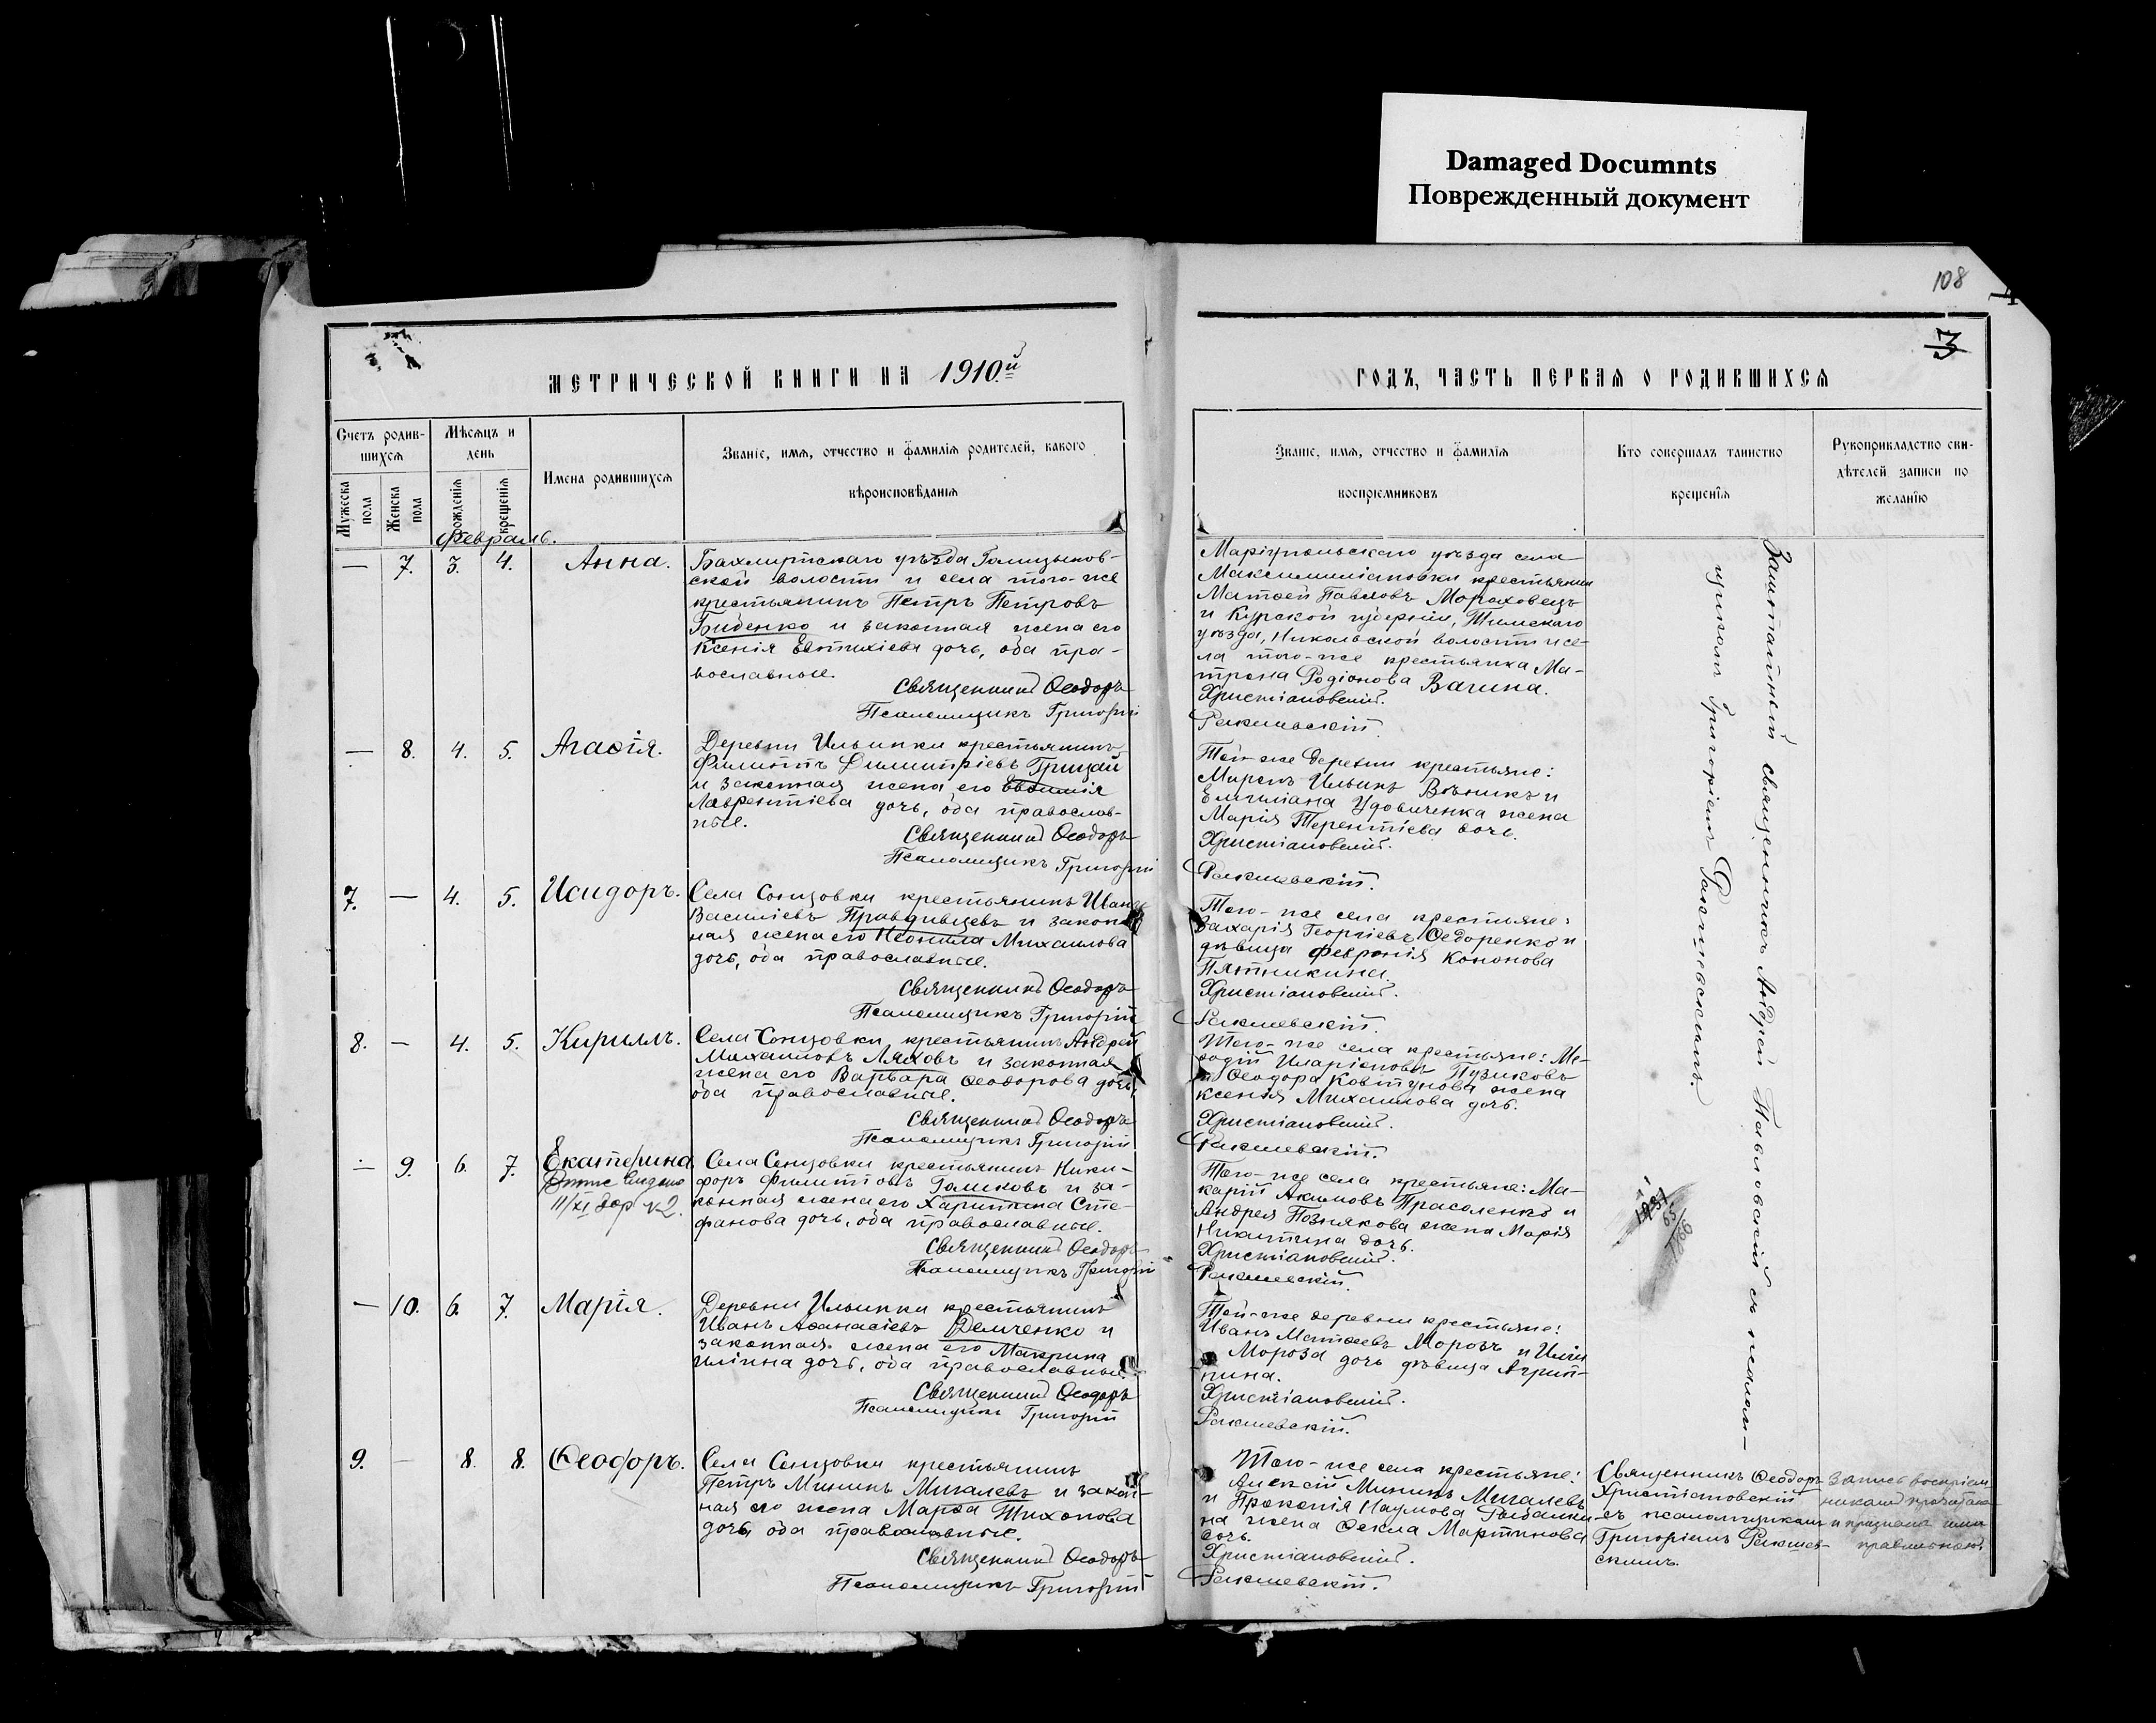 Damaged Documnts
Поврежденный документ
108
3
МЕТРИЧЕСКОЙ КНИГИ НА 1910.й
ГОДЪ, ЧАСТЬ ПЕРВАЯ О РОДИВШИХСЯ
Счетъ родив-
шихся
Мужеска пола
Женска пола
Мѣсяцъ и
день
рожденія
крещенія
Имена родившихся
Званіе, имя, отчество и фамилія родителей, какого
вѣроисповѣданія
Званіе, имя, отчество и фамилія
воспріемниковъ
Кто совершалъ таинство
крещенія
Рукоприкладство сви-
дѣтелей записи по
желанію
Февраль.
— 7. 3. 4. Анна.
Бахмутскаго уѣзда Голицынов-
ской волости и села того-же
крестьянинъ Петръ Петровъ
Биденко и законная жена его
Ксенія Евтихіева дочь, оба пра-
вославные.
Священникъ Ѳеодоръ
Псаломщикъ Григорій
Маріупольскаго уѣзда села
Максимиліановки крестьянин
Матѳей Павловъ Мораховецъ
и Курской губерніи, Тимскаго
уѣзда, Никольской волости и се-
ла того-же крестьянка Ма-
трона Родіонова Вагина.
Христіановскій.
Ракшевскій.
Заштатный священникъ Андрей Павловскій съ псалом-
щикомъ Григоріемъ Ракшевскимъ.
— 8. 4. 5. Агаѳія.
Деревни Ильинки крестьянинъ
Филиппъ Димитріевъ Грицай
и законная жена его Евѳимія
Лаврентіева дочь, оба православ-
ные.
Священникъ Ѳеодоръ
Псаломщикъ Григорій
Той-же деревни крестьяне:
Миронъ Ильинъ Вѣникъ и
Емиліана Удовиченка жена
Марія Терентіева дочь.
Христіановскій.
Ракшевскій.
7. — 4. 5. Исидоръ.
Села Сонцовки крестьянинъ Иванъ
Василіевъ Правдивцевъ и закон-
ная жена его Неонила Михаилова
дочь, оба православные.
Священникъ Ѳеодоръ
Псаломщикъ Григорій
Того-же села крестьяне:
Захарія Георгіевъ Ѳедоренко и
дѣвица Февронія Кононова
Пятникина.
Христіановскій.
Ракшевскій.
8. — 4. 5. Кириллъ.
Села Сонцовки крестьянинъ Андрей
Михаиловъ Ляховъ и законная
жена его Варвара Ѳеодорова дочь,
оба православные.
Священникъ Ѳеодоръ
Псаломщикъ Григорій
Того-же села крестьяне: Ме-
ѳодій Иларіоновъ Пузиковъ
и Ѳеодора Ковтунова жена
Ксенія Михаилова дочь.
Христіановскій.
Ракшевскій.
— 9. 6. 7. Екатерина
11/XI
Села Сонцовки крестьянинъ Ники-
форъ Филипповъ Голиковъ и за-
конная жена его Харитина Сте-
фанова дочь, оба православные.
Священникъ Ѳеодоръ
Псаломщикъ Григорій
Того-же села крестьяне: Ма-
карій Акимовъ Прасоленко и
Андрея Познякова жена Марія
Никитина дочь.
Христіановскій.
Ракшевскій.
— 10. 6. 7. Марія.
Деревни Ильинки крестьянинъ
Иванъ Аѳанасіевъ Демченко и
законная жена его Макрина
Иліина дочь, оба православные.
Священникъ Ѳеодоръ
Псаломщикъ Григорій
Той-же деревни крестьяне:
Иванъ Матѳеевъ Морозъ и Иліи
Мороза дочь дѣвица Агрип-
пина.
Христіановскій.
Ракшевскій.
9. — 8. 8. Ѳеодоръ.
Села Сонцовки крестьянинъ
Петръ Мининъ Мигалевъ и закон-
ная его жена Марѳа Тихонова
дочь, оба православные.
Священникъ Ѳеодоръ
Псаломщикъ Григорій
Того-же села крестьяне:
Алексій Мининъ Мигалевъ
и Прокопія Наумова Рыбалки-
на жена Ѳекла Мартинова
дочь.
Христіановскій.
Ракшевскій.
Священникъ Ѳеодоръ
Христіановскій
съ псаломщикомъ
Григоріемъ Ракшев-
скимъ.
Запись воспріем-
никамъ прочитана
и признана ими
правильною.